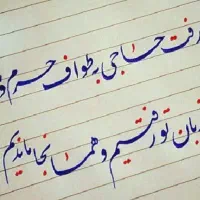 رفت حاجی به طواف حرم و
تو رفتیم و همانجا ماندیم